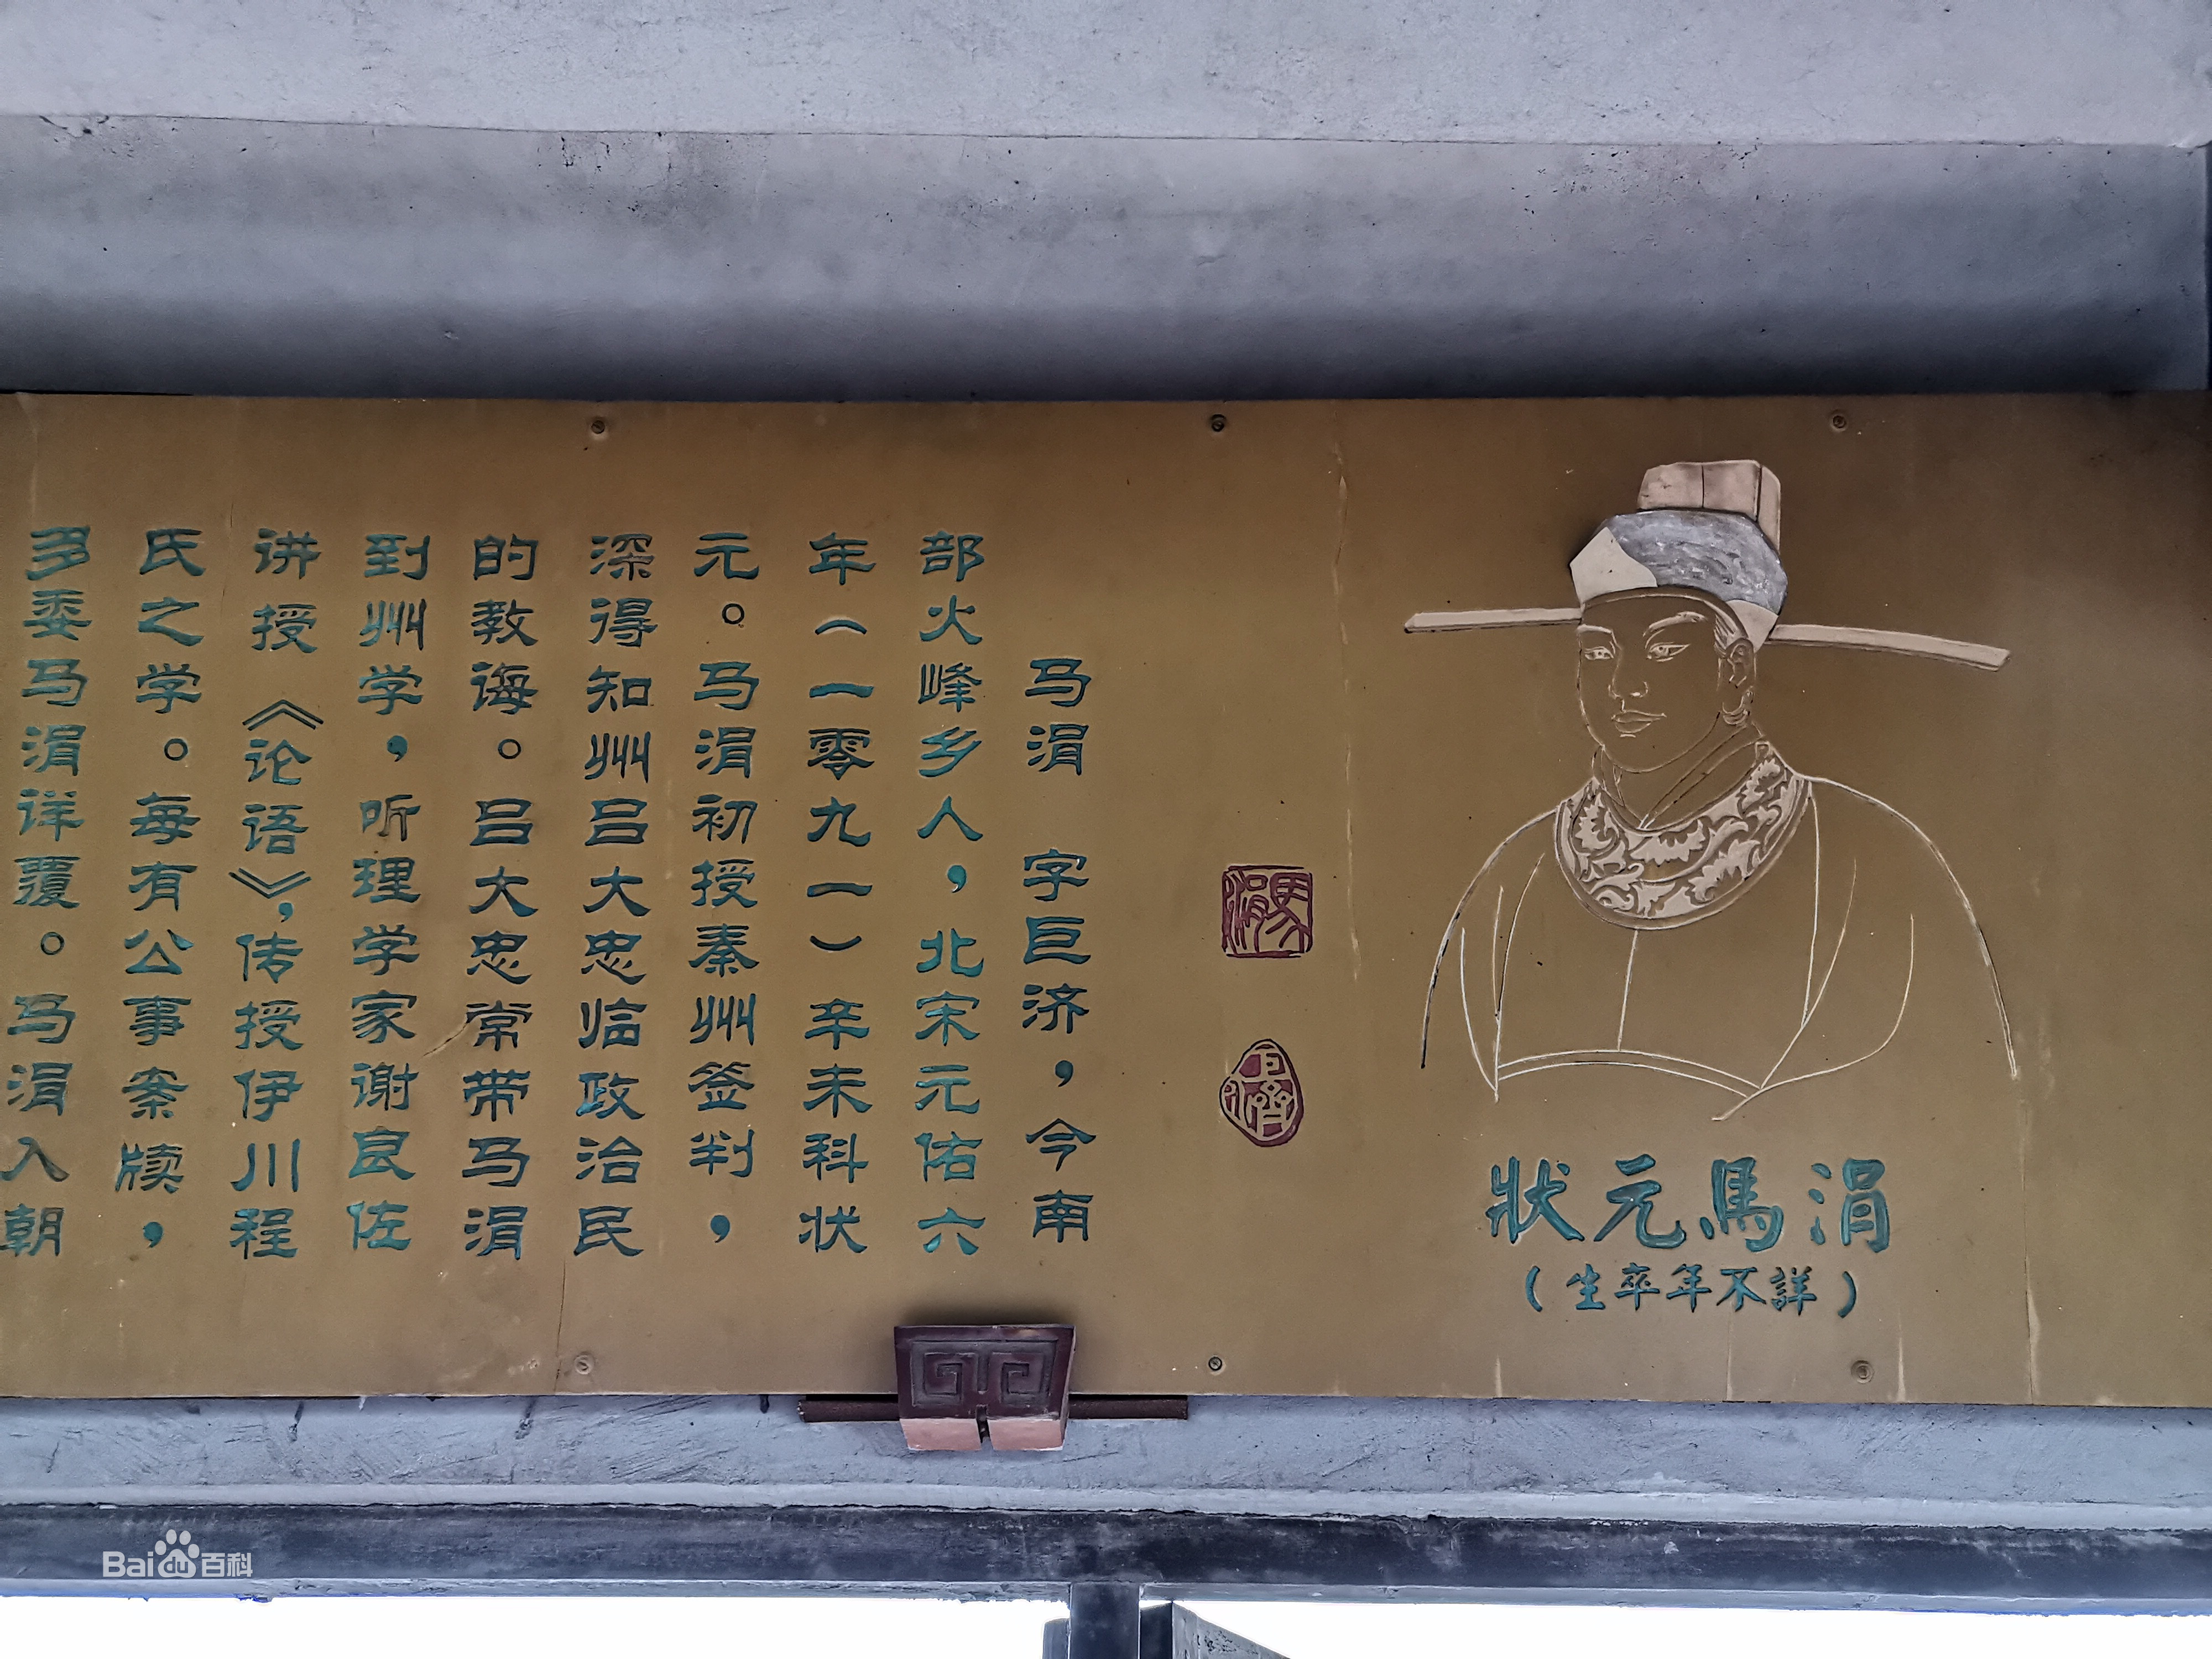 狀元馬涓
（生卒年不詳）
馬涓
巨濟
马涓 字巨济，今南
部火峰乡人，北宋元佑六
年（一零九一）辛未科状
元。马涓初授秦州签判，
深得知州吕大忠临政治民
的教诲。吕大忠常带马涓
到州学，听理学家谢良佐
讲授《论语》，传授伊川程
氏之学。每有公事案牍，
多委马涓详覆。马涓入朝
Baidu百科